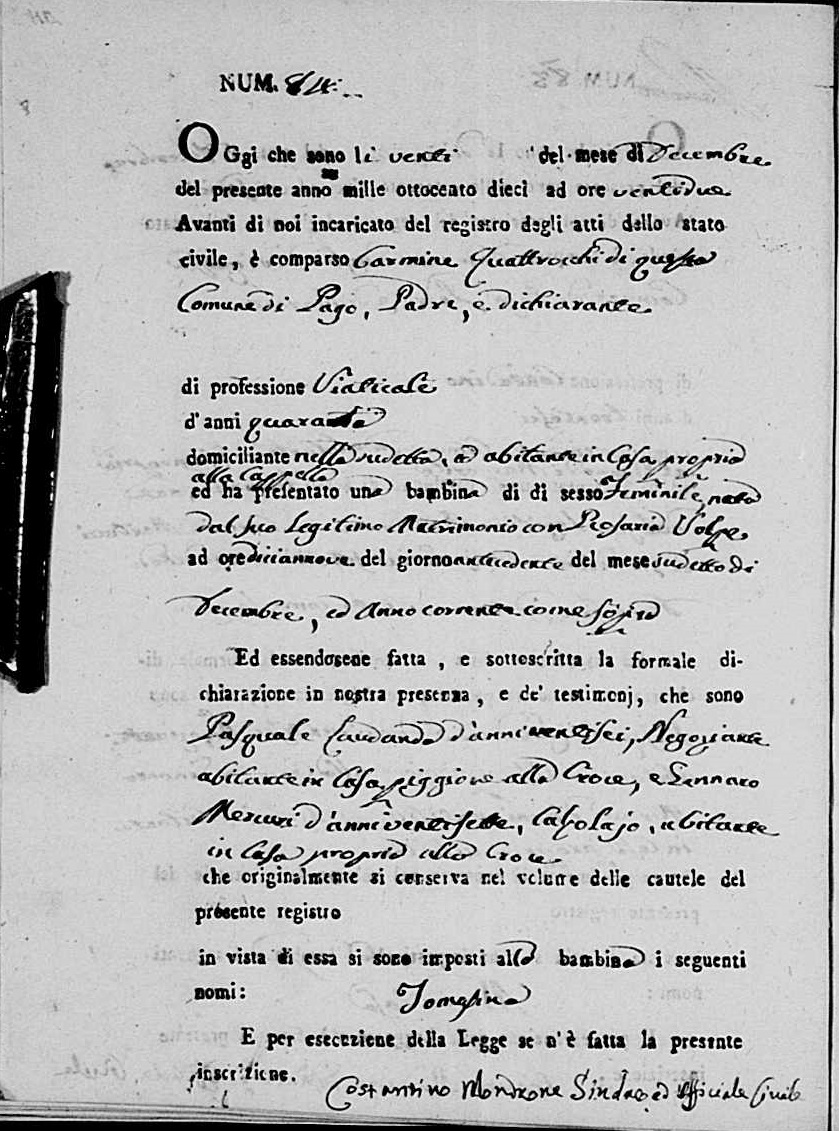 NUM. 84:
OGgi che sono li venti del mese di Decembre
del presente anno mille ottocento dieci ad ore ventidue
Avanti di noi incaricato del registro degli atti dello stato
civile, è comparso Carmine Quattrocchi di questa
Comune di Pago, Padre, e dichiarante
di professione Viaticale
d'anni quaranta
domiciliante nella sudetta, ed abitante in Casa propria
alla Cappella
ed ha presentato una bambina di di sesso Feminile, nata
dal suo Legitimo Matrimonio con Rosaria Volpe
ad ore diciannove del giorno antecedente del mese sudetto di
Decembre, ed Anno corrente come sopra
Ed essendosene fatta, e sottoscritta la formale di-
chiarazione in nostra presenza, e de' testimonj, che sono
Pasquale d'anni ventisei, Negoziante
abitante in Casa piggione alla Croce, e Gennaro
Mercuri d'anni ventisette, Calzolajo, abitante
in Casa propria alla Croce
che originalmente si conserva nel volume delle cautele del
presente registro
in vista di essa si sono imposti alla bambina i seguenti
nomi: Tomasina
E per esecuzione della Legge se n'è fatta la presente
inscrizione.
Costantino Mondrone Sindaco ed Officiale Civile